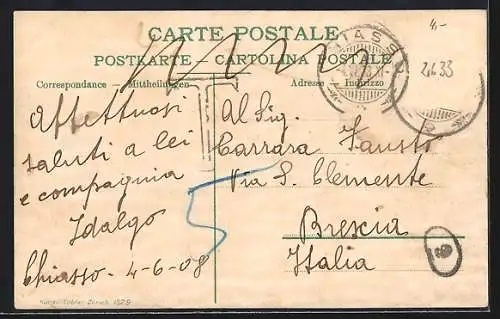 CARTE POSTALE
POSTKARTE – CARTOLINA POSTALE
Correspondance – Mittheilungen
Adresse – Indirizzo
Affettuosi
saluti a lei
e compagnia
Idalgo
Chiasso - 4-6-08
Al Sig.
Carrara Fausto
Via S. Clemente
Brescia
Italia
T
5
CHIASSO
4-
24633